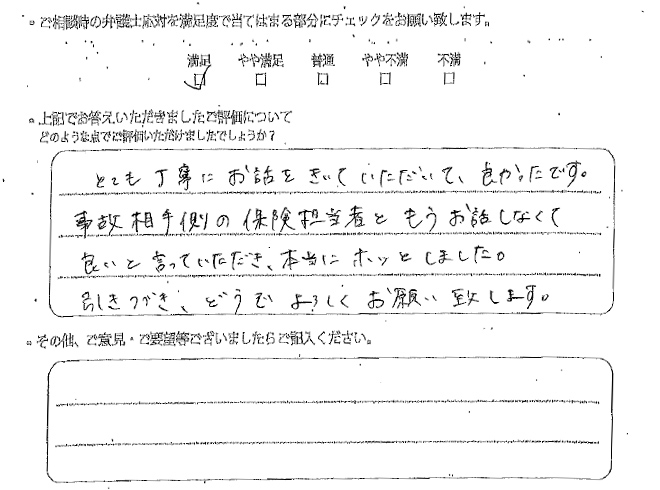 。ご相談時の弁護士応対を満足度で当てはまる部分にチェックをお願い致します。
満足 やや満足 普通 やや不満 不満
。上記でお答えいただきましたご評価について
どのような点でご評価いただけましたでしょうか？
とても丁寧にお話をきいていただいて、良かったです。
事故相手側の保険担当者ともうお話しなくて
良いと言っていただき、本当にホッとしました。
引きつづき、どうぞよろしくお願い致します。
。その他、ご意見・ご要望等ございましたらご記入ください。